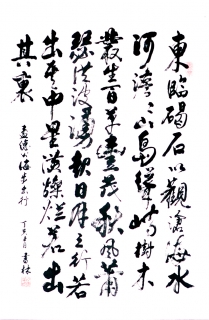 東臨碣石以觀滄海水
何澹〻山島竦峙樹木
叢生百草豐茂秋風蕭
瑟洪波湧起日月之行若
出其中星漢燦爛若出
其裏
丁亥
書林